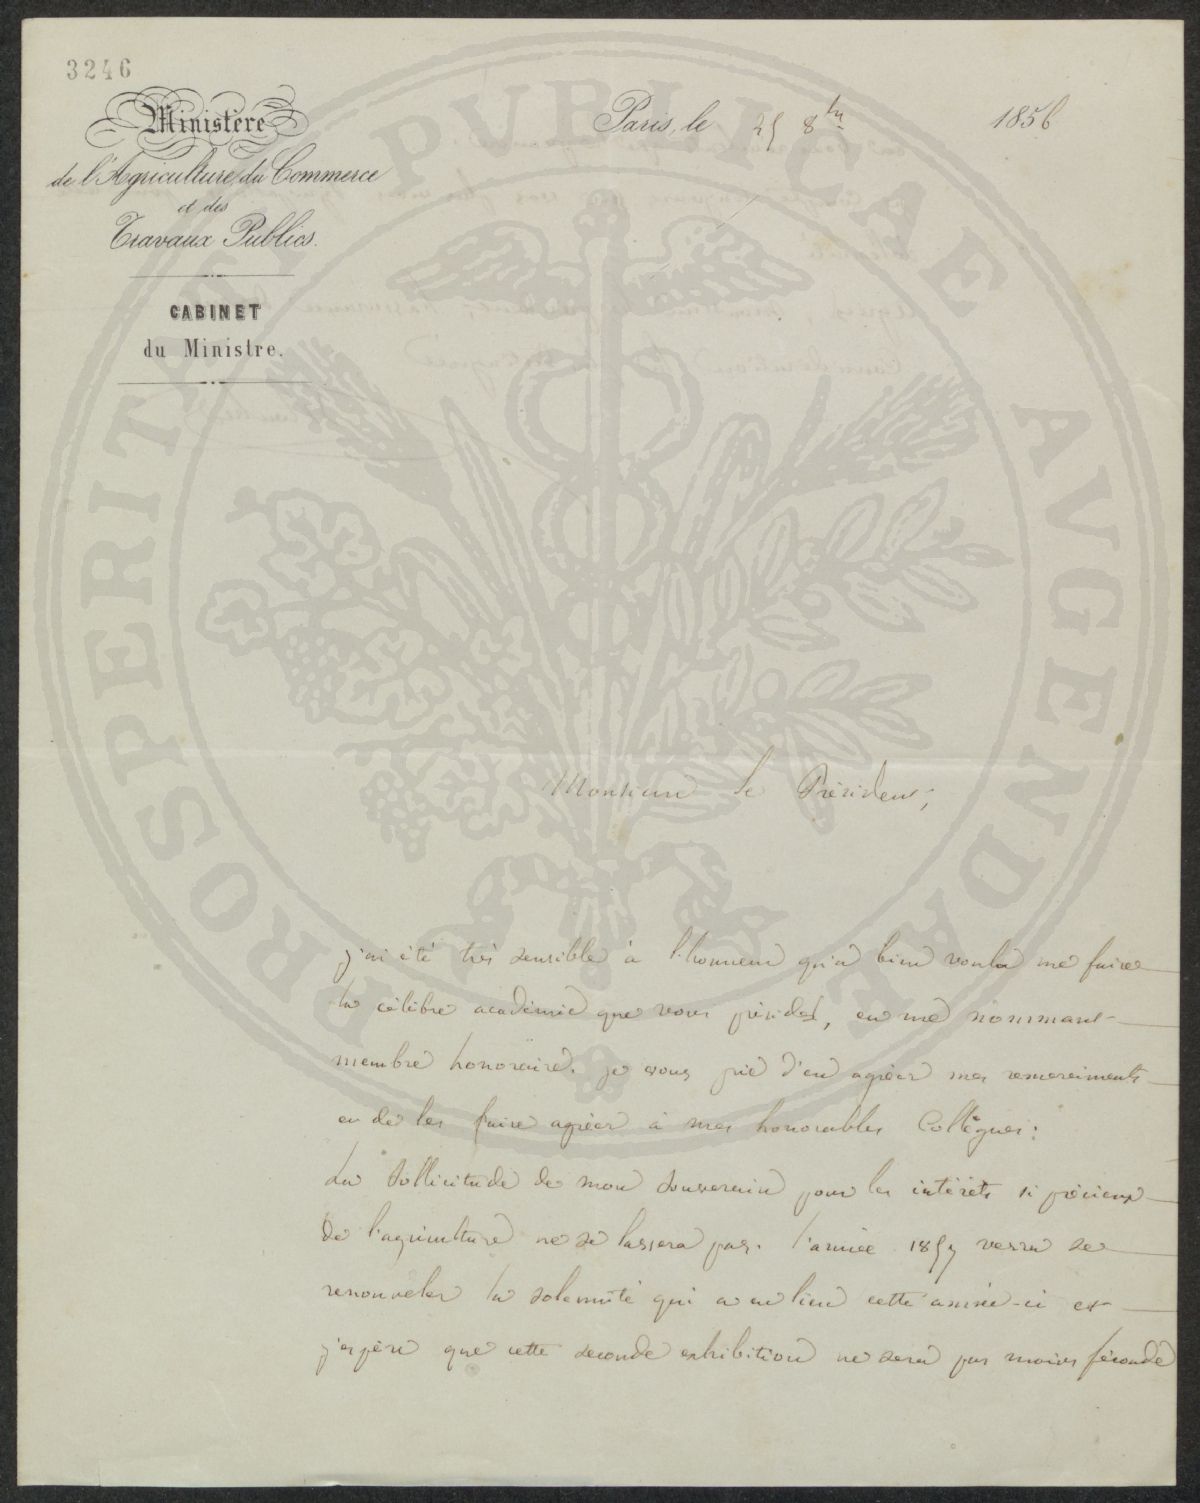 3246
Ministère
de l'Agriculture, du Commerce
et des
Travaux Publics.
CABINET
du Ministre.
Paris, le 25 8bre 1856
Monsieur le Président,
j'ai été très sensible à l'honneur qu'a bien voulu me faire
la célèbre académie que vous présidez, en me nommant
membre honoraire. je vous prie d'en agréer mes remerciments
et de les faire agréer à mes honorables Collègues:
La sollicitude de mon souverain pour les intérêts si précieux
de l'agriculture ne se lassera pas. l'année 1857 verra se
renouveler la solemnité qui a eu lieu cette année-ci et
j'espère que cette seconde exhibition ne sera pas moins féconde
PROSPERITATI PVBLICAE AVGENDAE